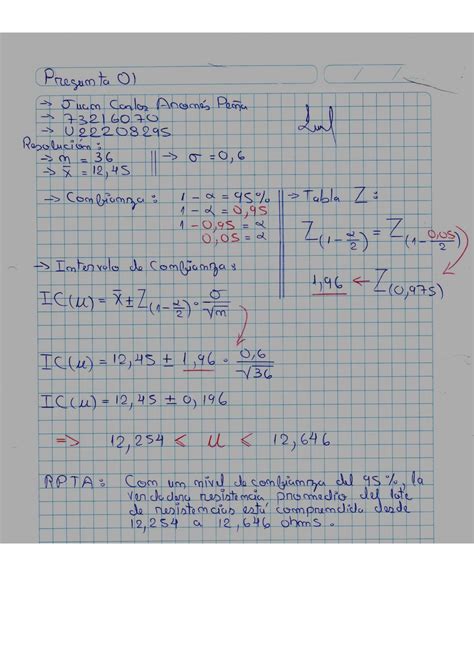 Pregunta 01
→ Juan Carlos Ancomés Peña
→ 73216070
→ U22208295
Resolución:
→ n = 36 → σ = 0,6
→ x̄ = 12,45
→ Confianza: 1 - α = 95% → Tabla Z:
1 - α = 0,95
1 - 0,95 = α
0,05 = α
Z(1 - α/2) = Z(1 - 0,05/2)
1,96 ← Z(0,975)
→ Intervalo de Confianza:
IC(μ) = x̄ ± Z(1 - α/2) · σ/√n
IC(μ) = 12,45 ± 1,96 · 0,6/√36
IC(μ) = 12,45 ± 0,196
=> 12,254 < μ < 12,646
RPTA: Con un nivel de confianza del 95%, la
verdadera resistencia promedio del lote
de resistencias está comprendida desde
12,254 a 12,646 ohms.